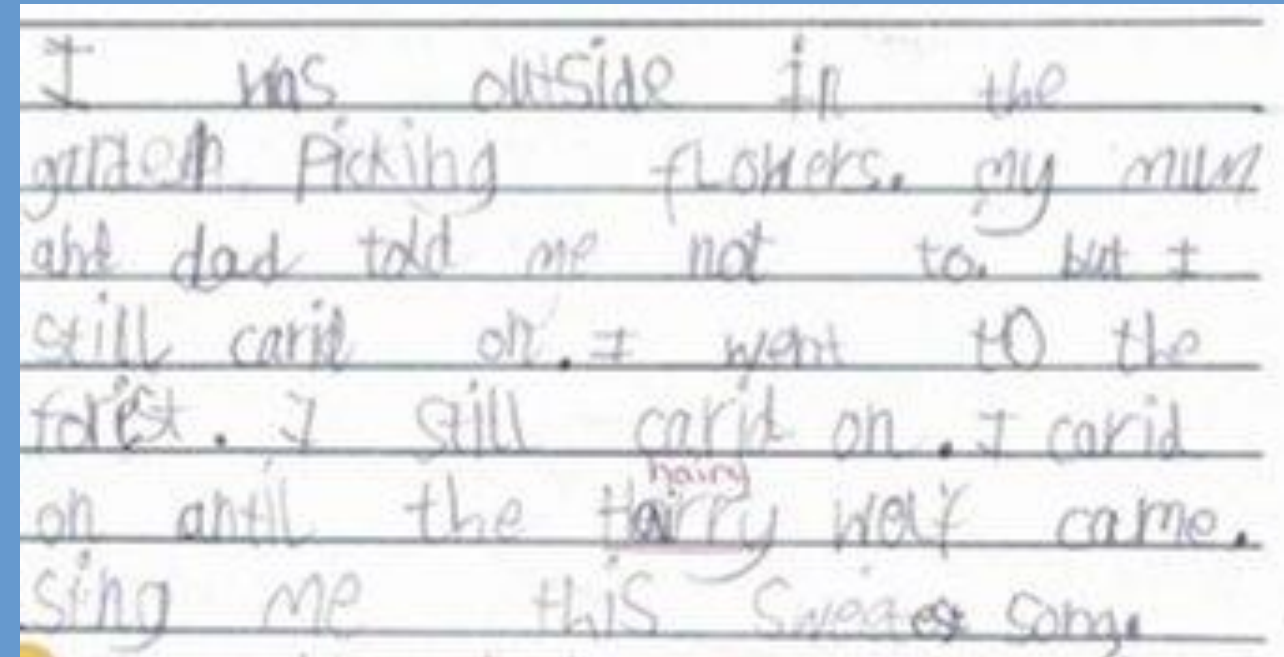 I was outside in the
garden Picking flowers. my mum
and dad told me not to. but I
still carid on. I went to the
forist. I still carid on. I carid
hairy
on antil the Hairry wolf came.
sing me this song.